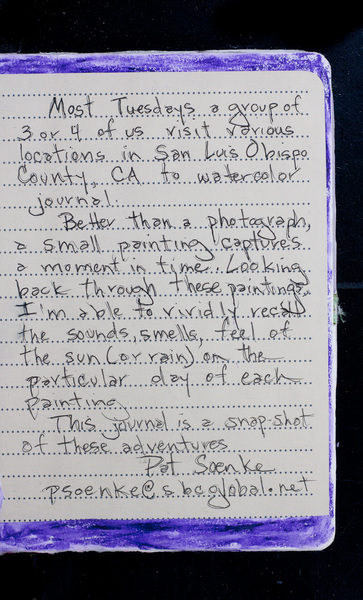 Most Tuesdays a group of
3 or 4 of us visit various
locations in San Luis Obispo
County, CA to watercolor
journal.
Better than a photograph,
a small painting captures
a moment in time. Looking
back through these paintings,
I'm able to vividly recall
the sounds, smells, feel of
the sun (or rain) on the
particular day of each
painting
This journal is a snap-shot
of these adventures
Pat Soenke
psoenke@sbcglobal.net